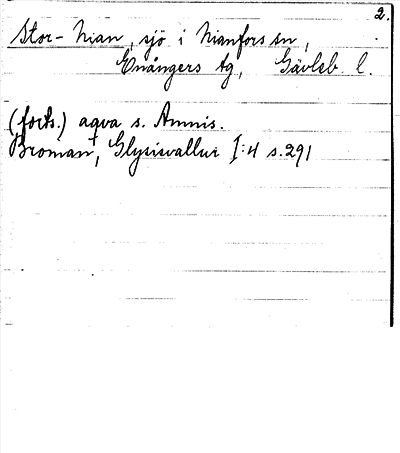 2.
Stor-Nian, sjö i Nianfors sn,
Enångers tg, Gävleb. l.
(forts.) aqva s. Amnis.
Broman, Glysisvallur I:4 s.291